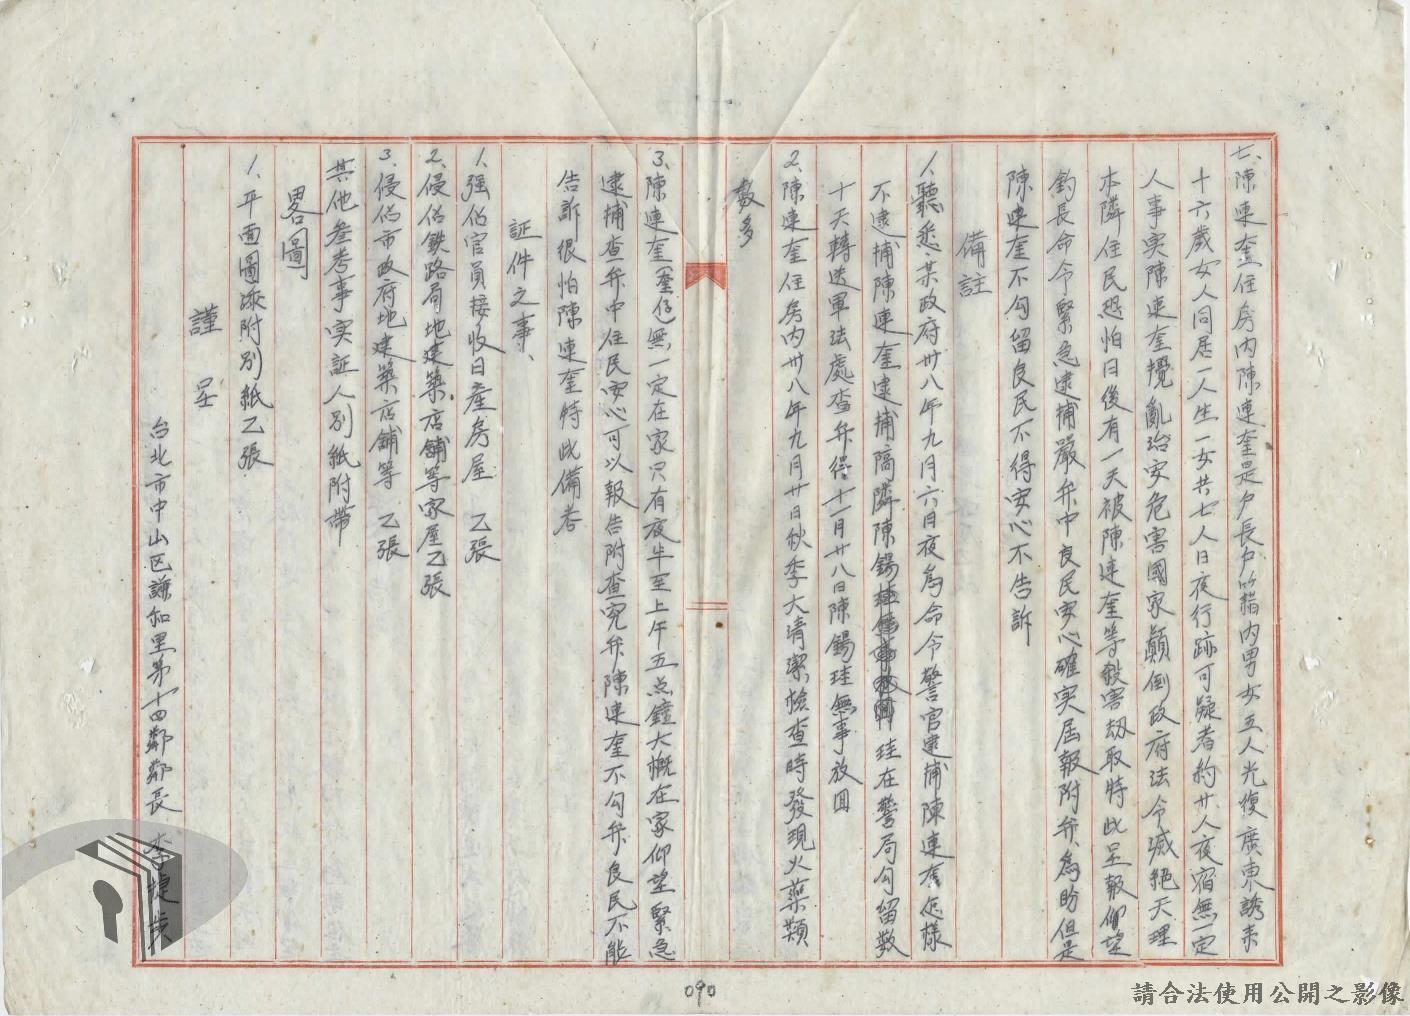 七、陳連奎住房内陳連奎是户長户籍内男女五人光復廣東誘来
十六歲女人同居一人生一女共七人日夜行跡可疑者約廿人夜宿無一定
人事実陳連奎攪亂治安危害國家顛倒政府法令滅絕天理
本隣住民恐怕日後有一天被陳連奎等殺害劫取特此呈報仰望
鈞長命令緊急逮捕嚴弁中良民安心確実屆報附弁為盼但是
陳連奎不勾留良民不得安心不告訴
備註
1、聽悉、某政府卅八年九月六日夜為命令警官逮捕陳連奎怎樣
不逮捕陳連奎逮捕隔隣陳錫珪在警局勾留数
十天轉送軍法處查弁得、十一月廿八日陳錫珪無事放囬
2、陳連奎住房内卅八年九月廿日秋季大清潔檢查時發現火藥類
数多
3、陳連奎(奎仔)無一定在家只有夜半至上午五点鐘大概在家仰望緊急
逮捕查弁中住民安心可以報告附查究弁陳連奎不勾弁良民不能
告訴很怕陳連奎特此備考
証件之事、
1、强佔官員接收日產房屋 乙張
2、侵佔鉄路局地建築店舖等家屋乙張
3、侵佔市政府地建築店舖等 乙張
其他叁考事实証人別紙附帶
畧圖
1、平面圖添附別紙乙張
謹 呈
台北市中山区謙和里第十四鄰鄰長 李捷
090
請合法使用公開之影像